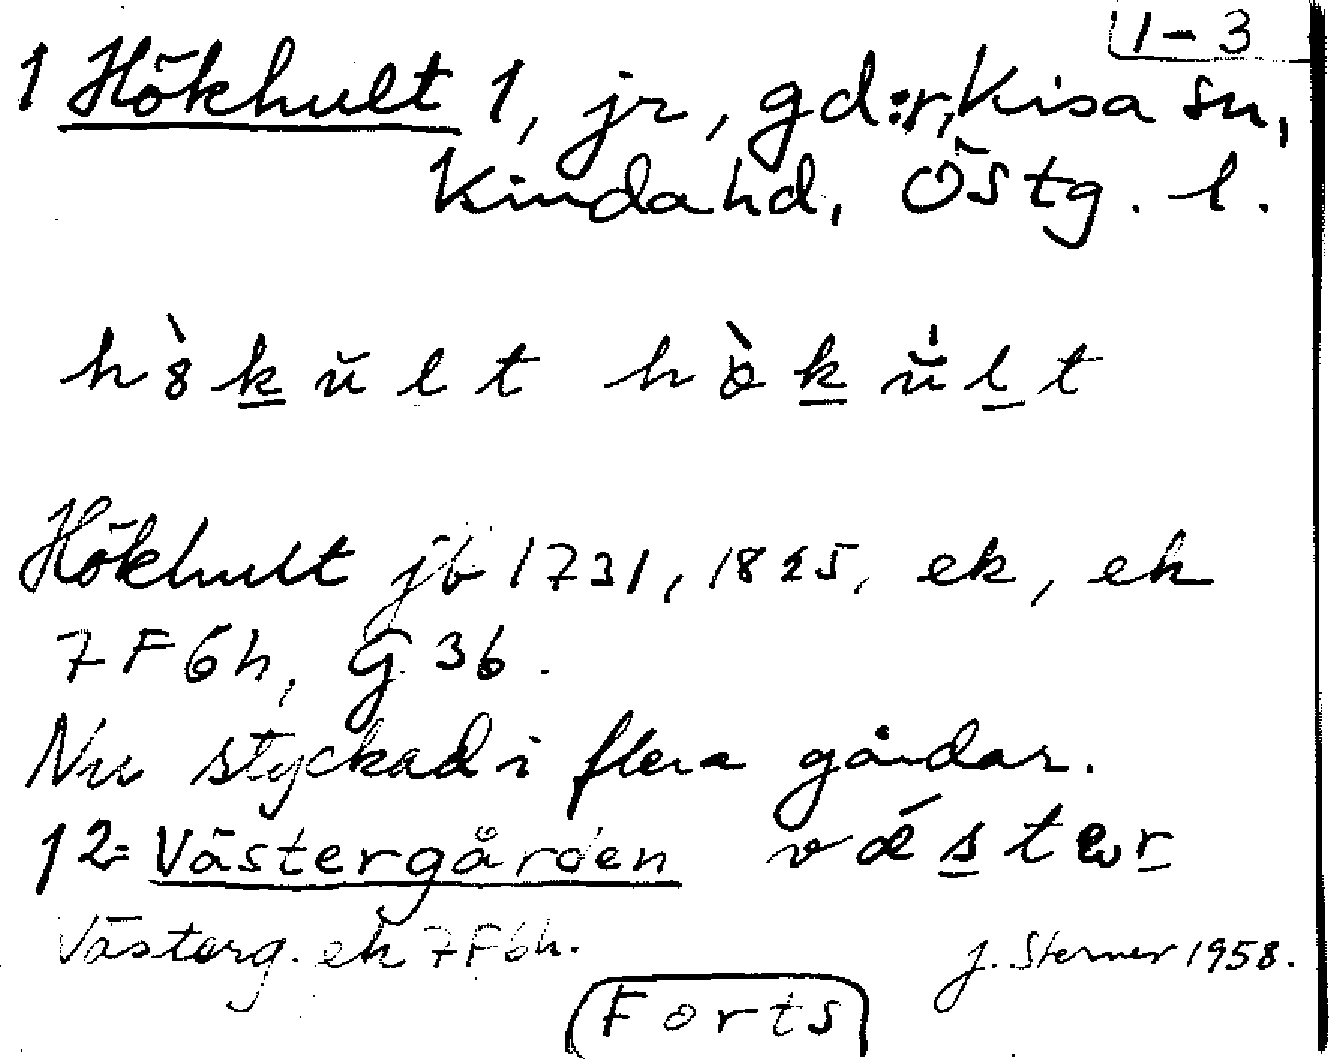 1-3
1 Hökhult 1, jr, gd:r, Kisa sn,
Kinda hd, Östg. l.
Hökhult jb 1731, 1825, ek, ek
7F6h, G 36.
Nu styckad i flera gårdar.
12= Västergården
Västerg. ek 7F6h.
J. Sterner 1958.
Forts